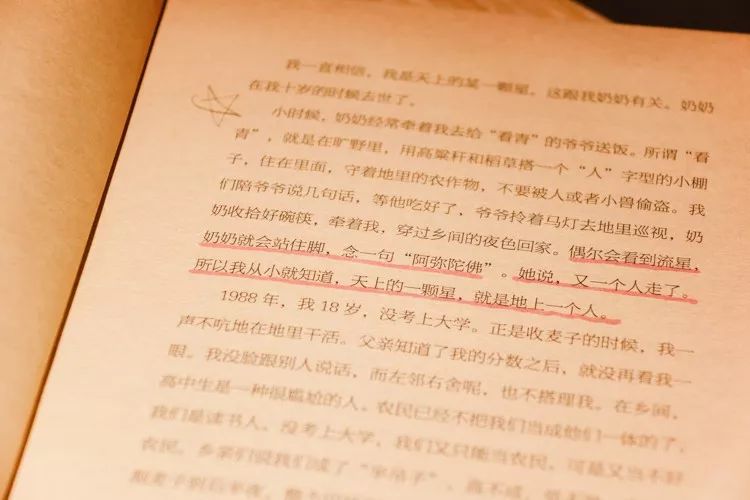 我一直相信，我是天上的某一颗星。这跟我奶奶有关。奶奶
在我十岁的时候去世了。
小时候，奶奶经常牵着我去给“看青”的爷爷送饭。所谓“看
青”，就是在旷野里，用高粱秆和稻草搭一个“人”字型的小棚
子，住在里面，守着地里的农作物，不要被人或者小兽偷盗。我
们陪爷爷说几句话，等他吃好了，爷爷拎着马灯去地里巡视，奶
奶收拾好碗筷，牵着我，穿过乡间的夜色回家。偶尔会看到流星，
奶奶就会站住脚，念一句“阿弥陀佛”。她说，又一个人走了。
所以我从小就知道，天上的一颗星，就是地上一个人。
1988年，我18岁，没考上大学。正是收麦子的时候，我一
声不吭地在地里干活。父亲知道了我的分数之后，就没再看我一
眼。我没脸跟别人说话，而左邻右舍呢，也不搭理我。在乡间，
高中生是一种很尴尬的人。农民已经不把我们当成他们一体的了，
我们是读书人。没考上大学，我们又只能当农民，可是又当不好
农民。乡亲们说我们成了“半吊子”，高不成，低不